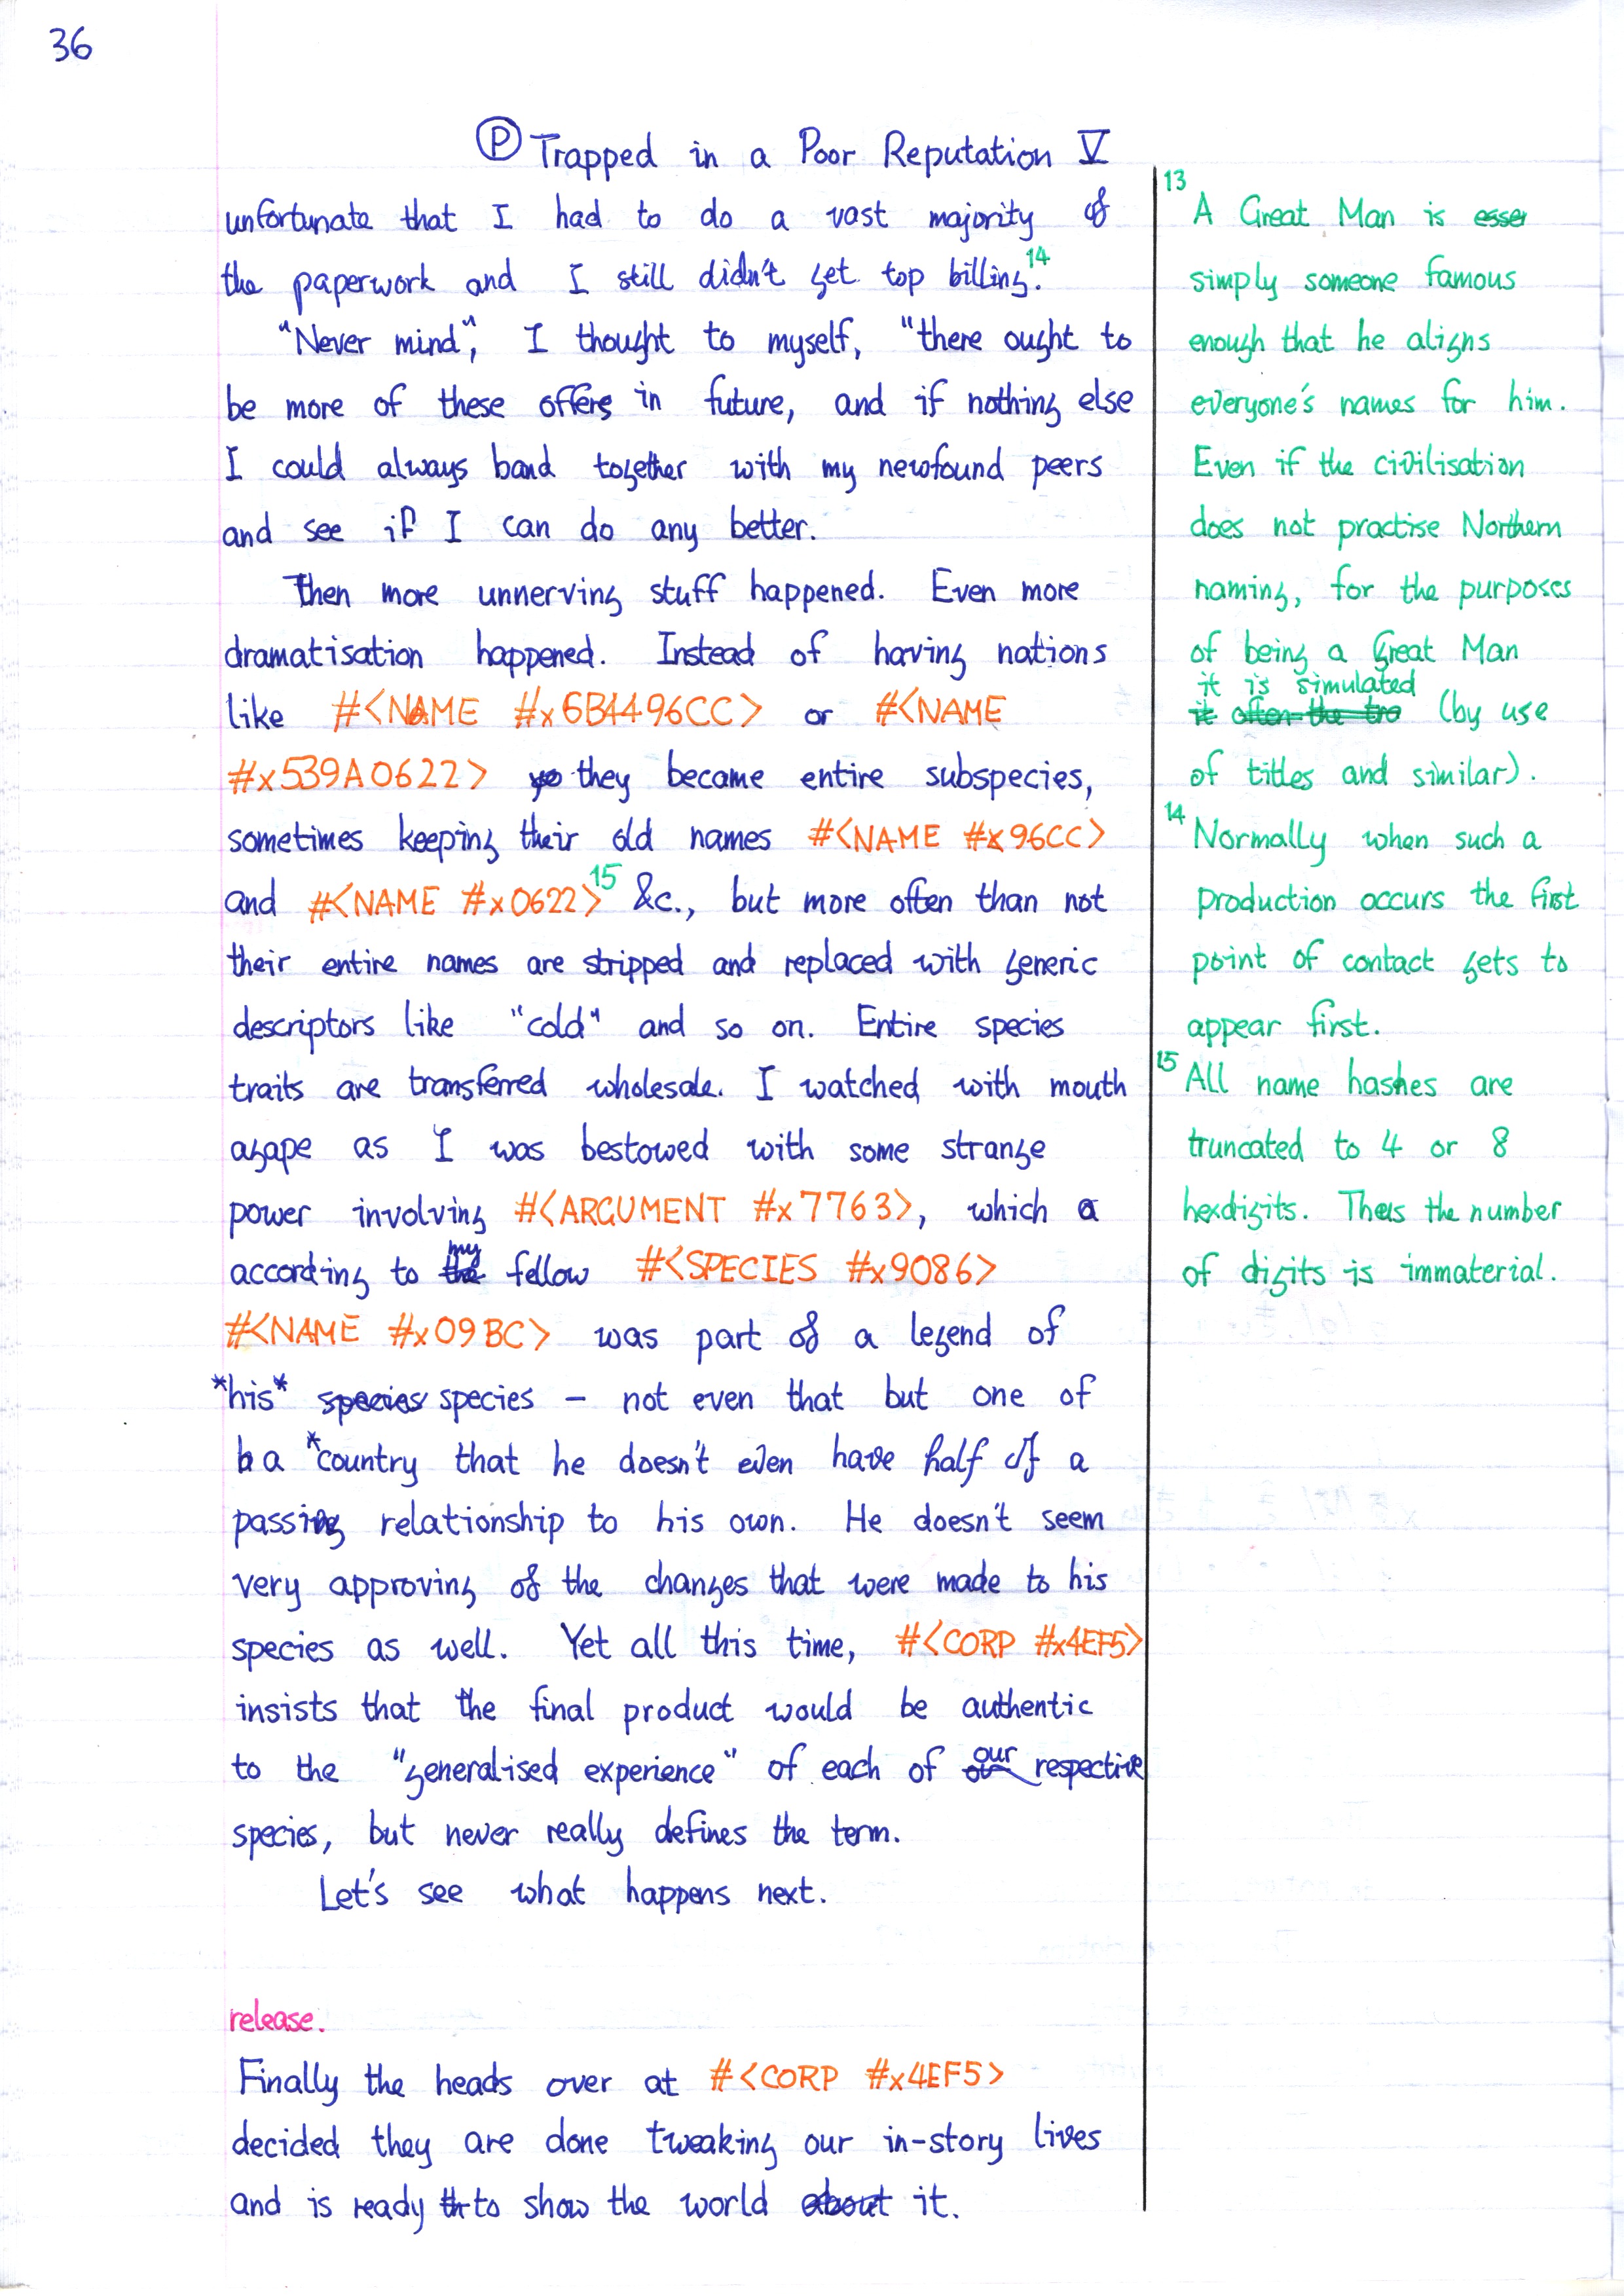 36
Ⓟ Trapped in a Poor Reputation V
unfortunate that I had to do a vast majority of
the paperwork and I still didn't get top billing.14
"Never mind", I thought to myself, "there ought to
be more of these offers in future, and if nothing else
I could always band together with my newfound peers
and see if I can do any better.
Then more unnerving stuff happened. Even more
dramatisation happened. Instead of having nations
like #<NAME #x6B4496CC> or #<NAME
#x539A0622> they became entire subspecies,
sometimes keeping their old names #<NAME #x96CC>
and #<NAME #x0622>15 &c., but more often than not
their entire names are stripped and replaced with generic
descriptors like "cold" and so on. Entire species
traits are transferred wholesale. I watched with mouth
agape as I was bestowed with some strange
power involving #<ARGUMENT #x7763>, which a
according to my fellow #<SPECIES #x9086>
#<NAME #x09BC> was part of a legend of
*his* species species – not even that but one of
b a *country that he doesn't even have half of a
passing relationship to his own. He doesn't seem
very approving of the changes that were made to his
species as well. Yet all this time, #<CORP #x4EF5>
insists that the final product would be authentic
to the "generalised experience" of each of our respective
species, but never really defines the term.
Let's see what happens next.
release.
Finally the heads over at #<CORP #x4EF5>
decided they are done tweaking our in-story lives
and is ready th to show the world about it.
13
A Great Man is esser
simply someone famous
enough that he aligns
everyone's names for him.
Even if the civilisation
does not practise Northern
naming, for the purposes
of being a Great Man
it is simulated
it often the tro (by use
of titles and similar).
14 Normally when such a
production occurs the first
point of contact gets to
appear first.
15 All name hashes are
truncated to 4 or 8
hexdigits. Thus the number
of digits is immaterial.